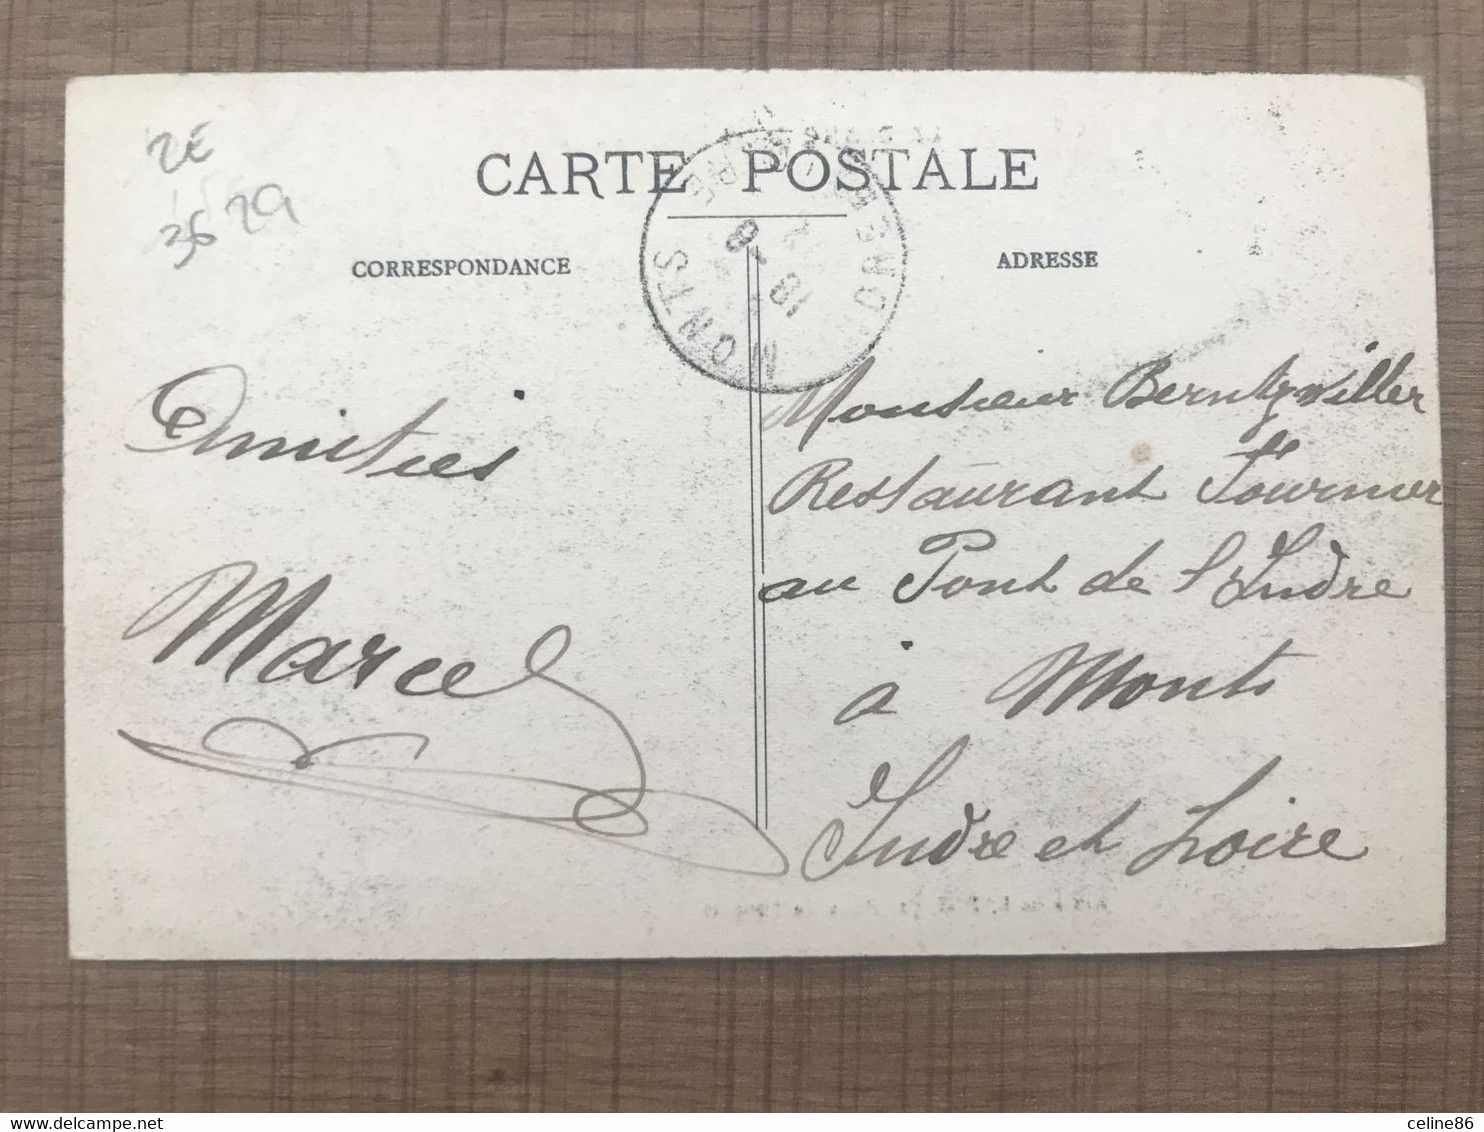 2E
3629
CARTE POSTALE
CORRESPONDANCE
ADRESSE
MONTS
INDRE
18 - 8
Amitiés
Marcel
Monsieur Berntzwiller
Restaurant Fournier
au Pont de l'Indre
à Monts
Indre et Loire
celine86